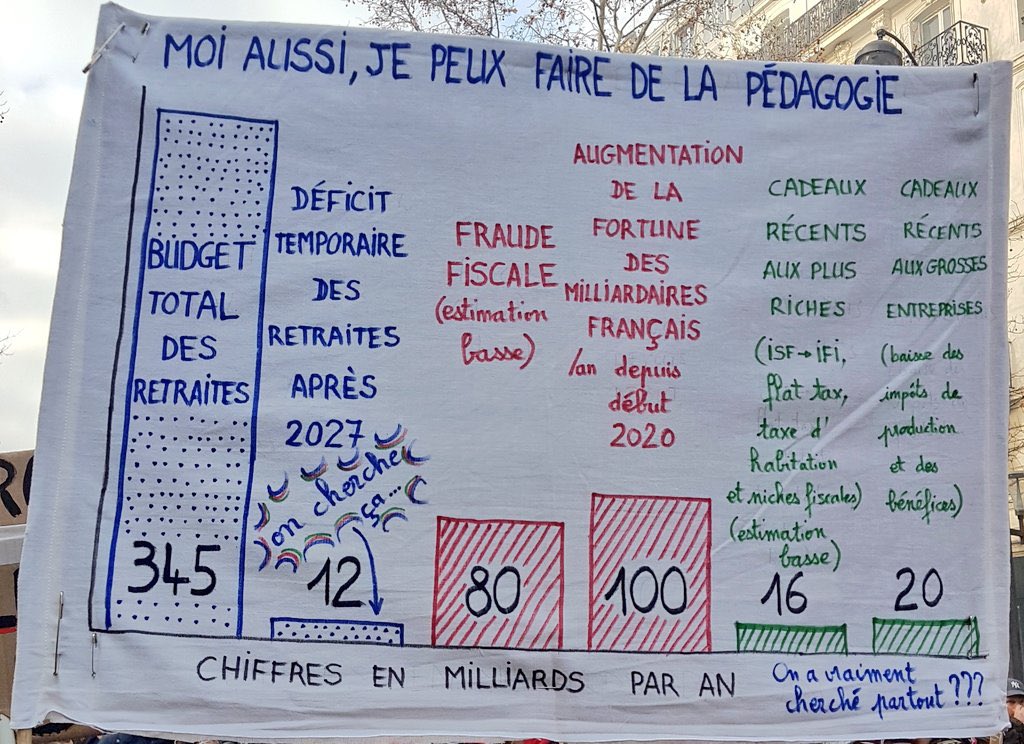 MOI AUSSI, JE PEUX FAIRE DE LA PÉDAGOGIE
BUDGET
TOTAL
DES
RETRAITES
345
DÉFICIT
TEMPORAIRE
DES
RETRAITES
APRÈS
2027
on cherche
ça...
12
FRAUDE
FISCALE
(estimation
basse)
80
AUGMENTATION
DE LA
FORTUNE
DES
MILLIARDAIRES
FRANÇAIS
/an depuis
début
2020
100
CADEAUX
RÉCENTS
AUX PLUS
RICHES
(ISF→IFI,
flat tax,
taxe d'
habitation
et niches fiscales)
(estimation
basse)
16
CADEAUX
RÉCENTS
AUX GROSSES
ENTREPRISES
(baisse des
impôts de
production
et des
bénéfices)
20
CHIFFRES EN MILLIARDS PAR AN
On a vraiment
cherché partout ???